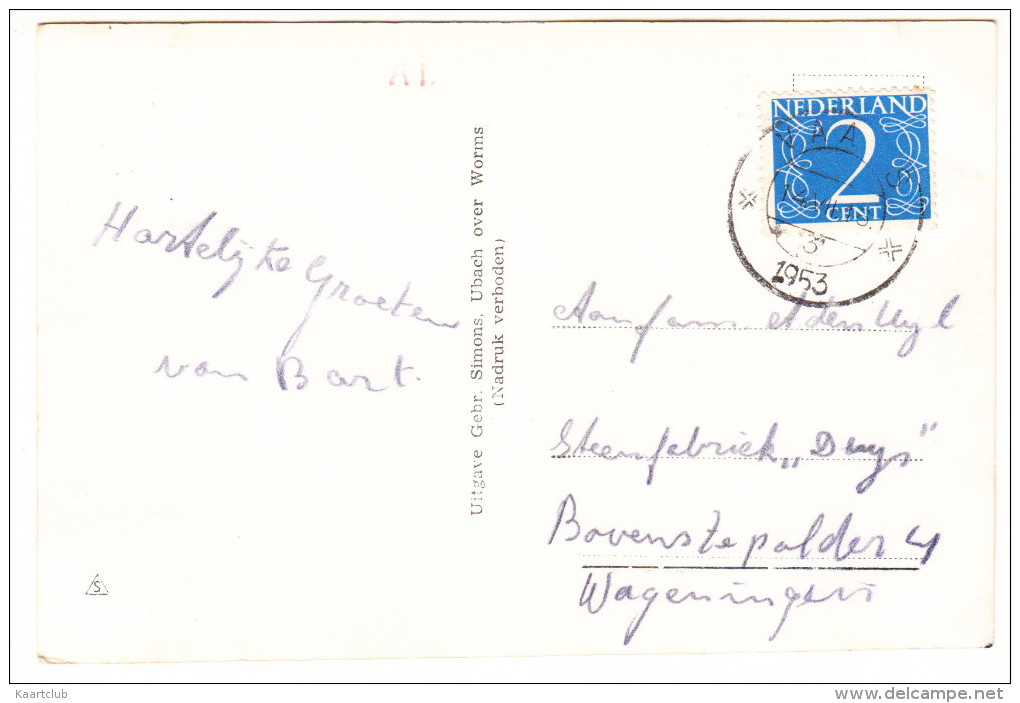 Hartelijke Groeten
van Bart.
Uitgave Gebr. Simons, Ubach over Worms
(Nadruk verboden)
NEDERLAND
2
CENT
VAALS
1953
Aan fam. A den Uyl
Steenfabriek „Duys"
Bovenste polder 4
Wageningen
S
Kaartclub
delcampe.net